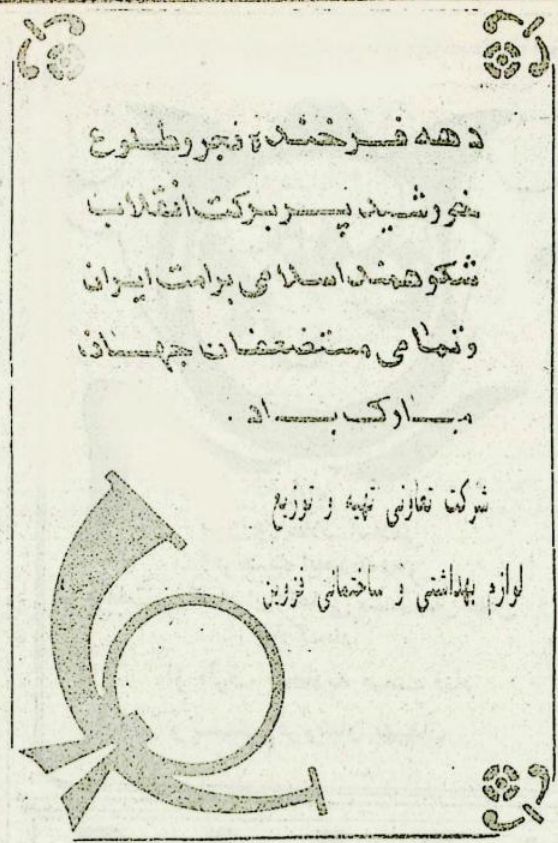 دهه فرخنده فجر و طلوع
خورشید پر برکت انقلاب
شکوهمند اسلامی بر امت ایران
و تمامی مستضعفان جهان،
مبارک باد .
شرکت تعاونی تهیه و توزیع
لوازم بهداشتی و ساختمانی قزوین